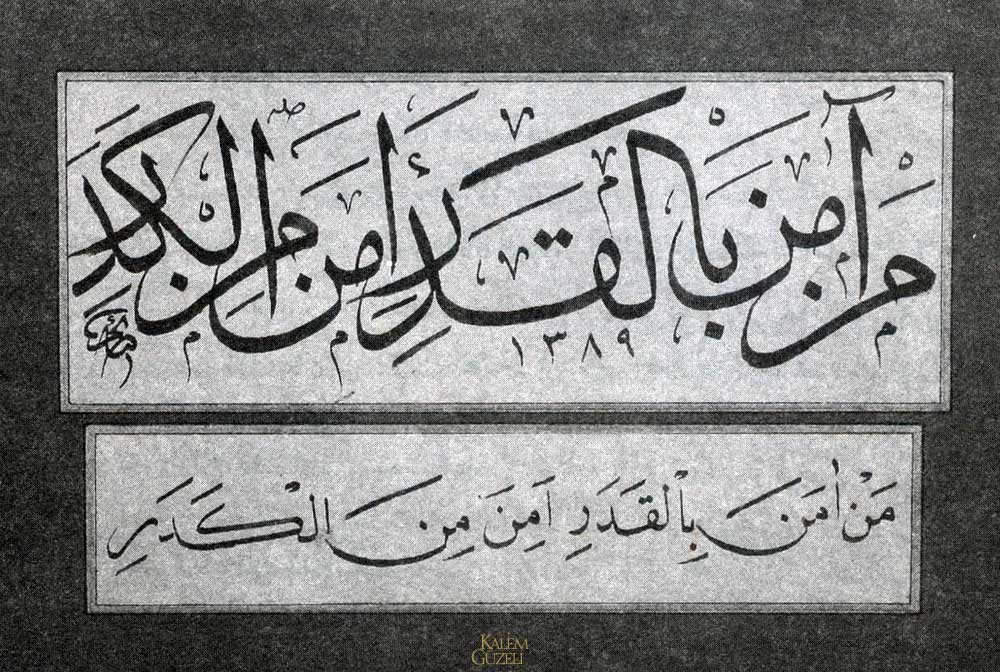 مَنْ آمَنَ بِالْقَدَرِ أَمِنَ مِنَ الْكَدَرِ
١٣٨٩
مَنْ اٰمَنَ بِالْقَدَرِ اَمِنَ مِنَ الْكَدَرِ
KALEM
GÜZELİ